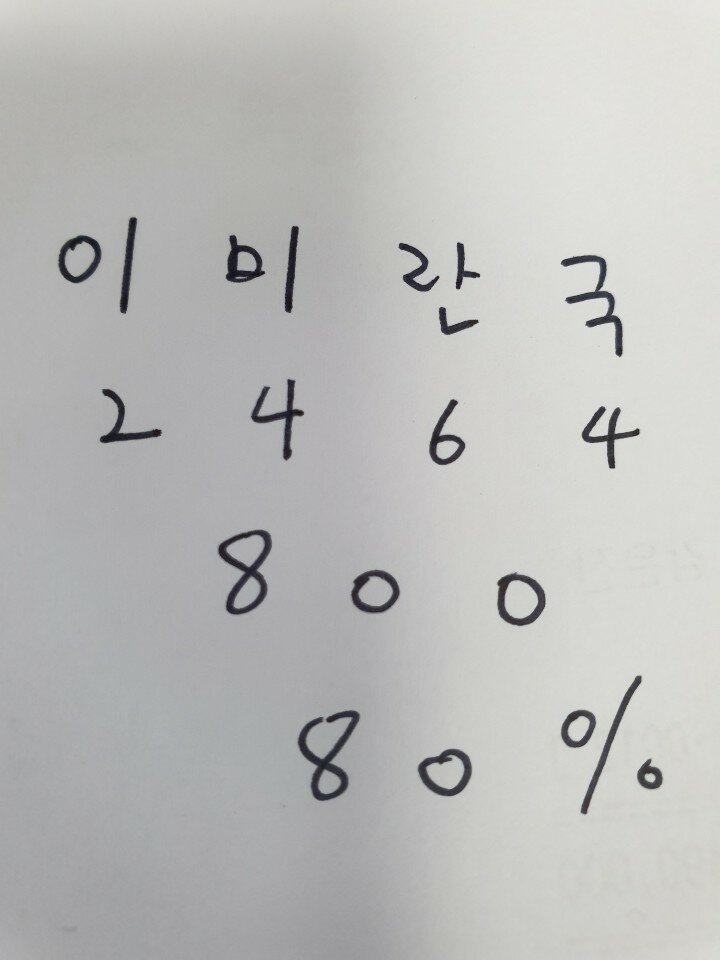 이 미 란 국
2 4 6 4
8 0 0
8 0 %